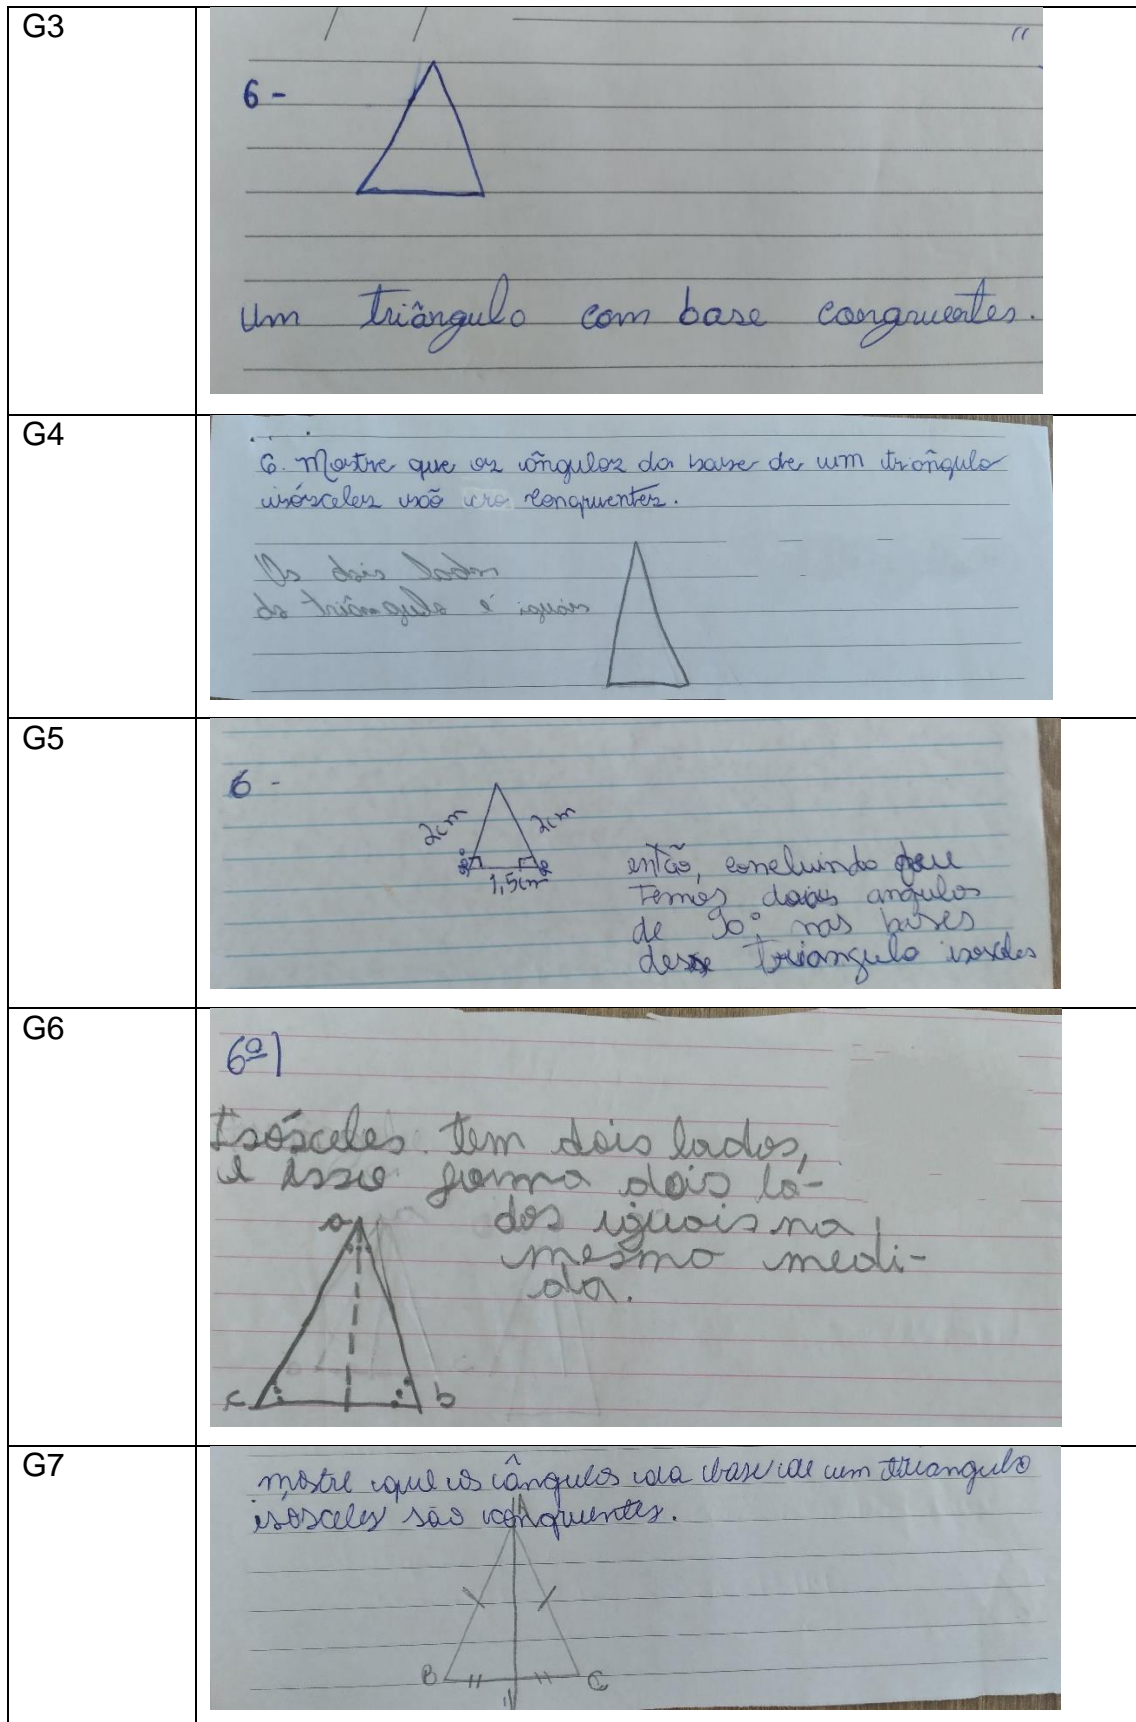 G3
6 -
um triângulo com base congruentes.
G4
6. Mostre que os ângulos da base de um triângulo
isósceles são congruentes.
Os dois lados
do triângulo é iguais
G5
6 -
2cm 2cm
1,5cm
então, concluindo que
temos dois angulos
de 90° nas bases
desse triangulo isosceles
G6
6ª)
Isósceles tem dois lados,
e isso forma dois la-
dos iguais na
mesmo medi-
da.
a
c b
G7
mostre que os ângulos da base de um triangulo
isósceles são congruentes.
A
B C